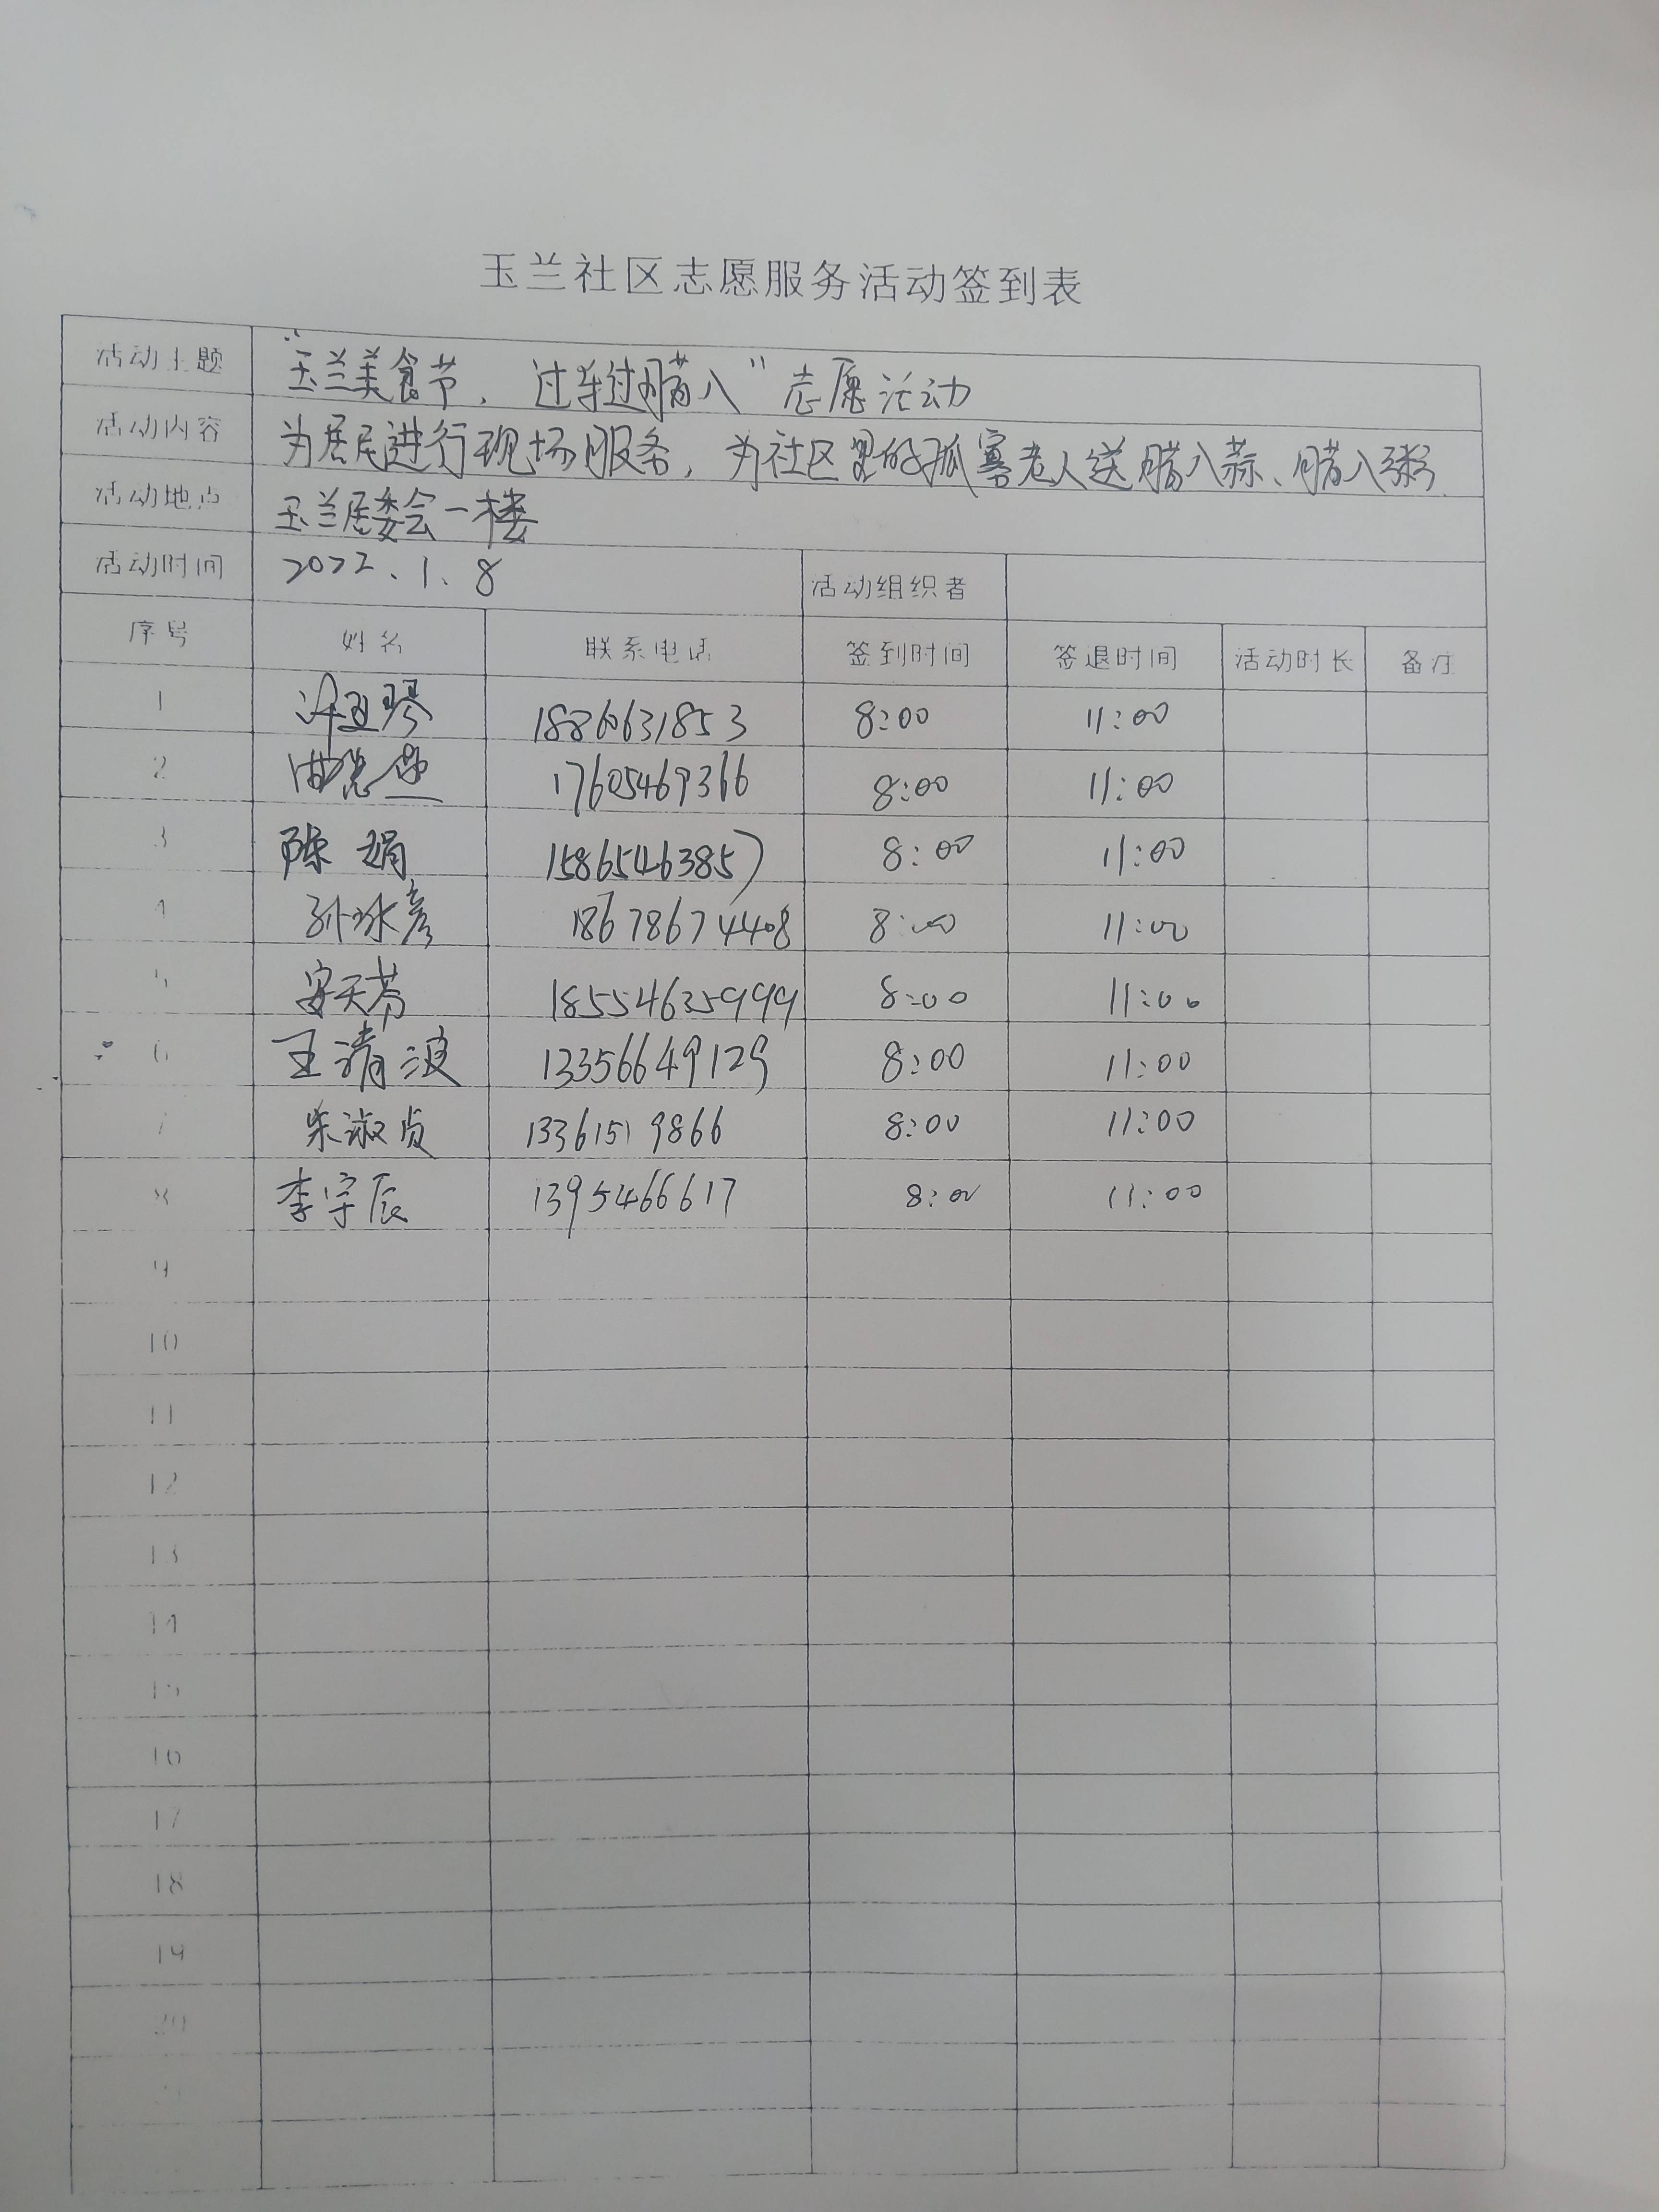 玉兰社区志愿服务活动签到表
活动主题 “玉兰美食节，过年过腊八”志愿活动
活动内容 为居民进行现场服务，为社区里的孤寡老人送腊八蒜、腊八粥
活动地点 玉兰居委会一楼
活动时间 2022、1、8 活动组织者
序号 姓名 联系电话 签到时间 签退时间 活动时长 备注
1 许亚琴 18860631853 8:00 11:00
2 17605469366 8:00 11:00
3 陈娟 15865463857 8:00 11:00
4 孙冰彦 18678674408 8:00 11:00
5 安天芬 18554635999 8:00 11:00
6 王清波 13356649129 8:00 11:00
7 朱淑贞 13361519866 8:00 11:00
8 李宇辰 1395466617 8:00 11:00
9
10
11
12
13
14
15
16
17
18
19
20